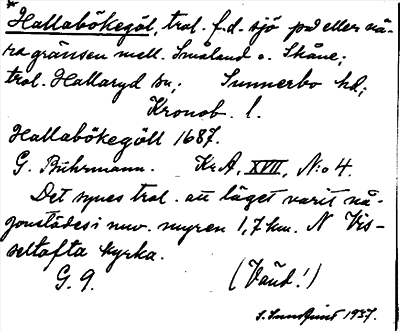 *
Hallabökegöl, trol. f.d. sjö på eller nä-
ra gränsen mell. Småland o. Skåne;
trol. Hallaryd sn; Sunnerbo hd;
Kronob. l.
Hallabökegöll 1687.
G. Buhrmann. KrA, XVII, N:o 4.
Det synes trol. att läget varit nå-
gonstädes i nuv. myren 1,7 km. N Vis-
seltofta kyrka.
G. 9. (Vänd!)
S. Sundqvist 1937.